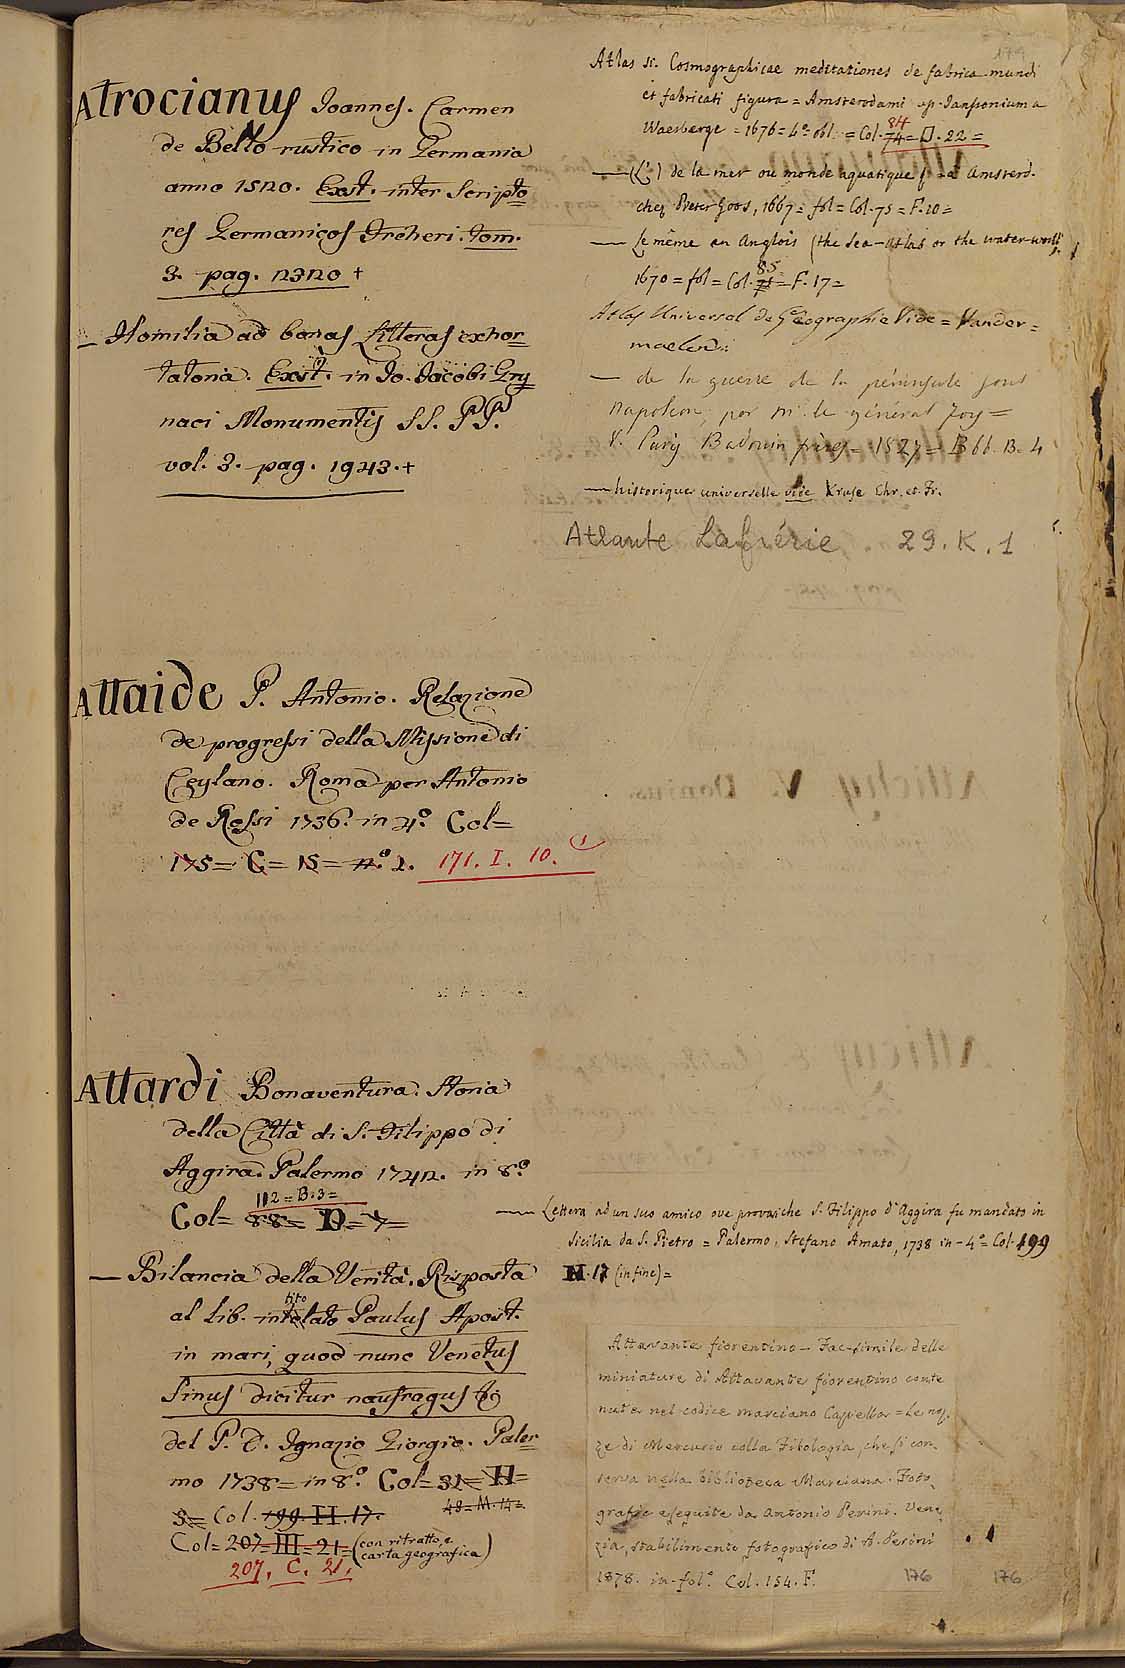 Atrocianus Joannes. Carmen
de Bello rustico in Germania
anno 1520. Exst. inter Scripto
res Germanicos Freheri. tom.
3. pag. 2320 +
— Homilia ad bonas Litteras exhor
tatoria. Exst. in Jo. Jacobi Gry
naei Monumentis SS. PP.
vol. 3. pag. 1943. +
Attaide P. Antonio. Relazione
de progressi della Missione di
Ceylano. Roma per Antonio
de Rossi 1736. in 4º Col=
175= C= 15= nº 2. 171. I. 10.
Attardi Bonaventura. Storia
della Città di S. Filippo di
Aggira. Palermo 1742. in 8º
112=B.3=
Col= 88= D= 7=
— Bilancia della Verità. Risposta
al Lib. intolato Paulus Apost.
tito
in mari, quod nunc Venetus
Sinus dicitur naufragus &
del P. D. Ignazio Giorgio. Paler
mo 1738= in 8º Col= 31= H=
3= Col. 199. H. 17. 48=M.14=
Col= 207= III= 21= (con ritratto, e
carta geografica)
207. C. 21.
Atlas si. Cosmographicae meditationes de fabrica mundi
et fabricati figura = Amsterodami ap. Janssonium a
Waesberge = 1676= 4º obl. = Col. 74= D. 22=
84
— (L') de la mer ou monde aquatique Amsterd.
chez Pieter Goos, 1667= fol= Col. 75= F. 20=
— Le même en Anglois (the Sea-Atlas or the water-world
1670= fol= Col. 75= F. 17=
85
Atlas Universel de Géographie Vide= Vander=
maelen:
— de la guerre de la péninsule sous
Napoleon, par m. le général Foy=
Baduin frères= 1827= B 66. B. 4
— historique universelle vide Kruse Chr. et Fr.
Atlante Lafrérie. 29. K. 1
— Lettera ad un suo amico ove provasi che S. Filippo d'Aggira fu mandato in
Sicilia da S. Pietro = Palermo, Stefano Amato, 1738 in-4º= Col. 199
H. 17 (in fine)=
Attavante fiorentino — Fac-simile delle
miniature di Attavante fiorentino conte
nute nel codice marciano Capella = Le noz
ze di Mercurio colla Filologia, che si con
serva nella biblioteca Marciana. Foto
grafie eseguite da Antonio Perini. Vene
zia, stabilimento fotografico di A. Perini
1878. in-folº Col. 154. F.
176
176